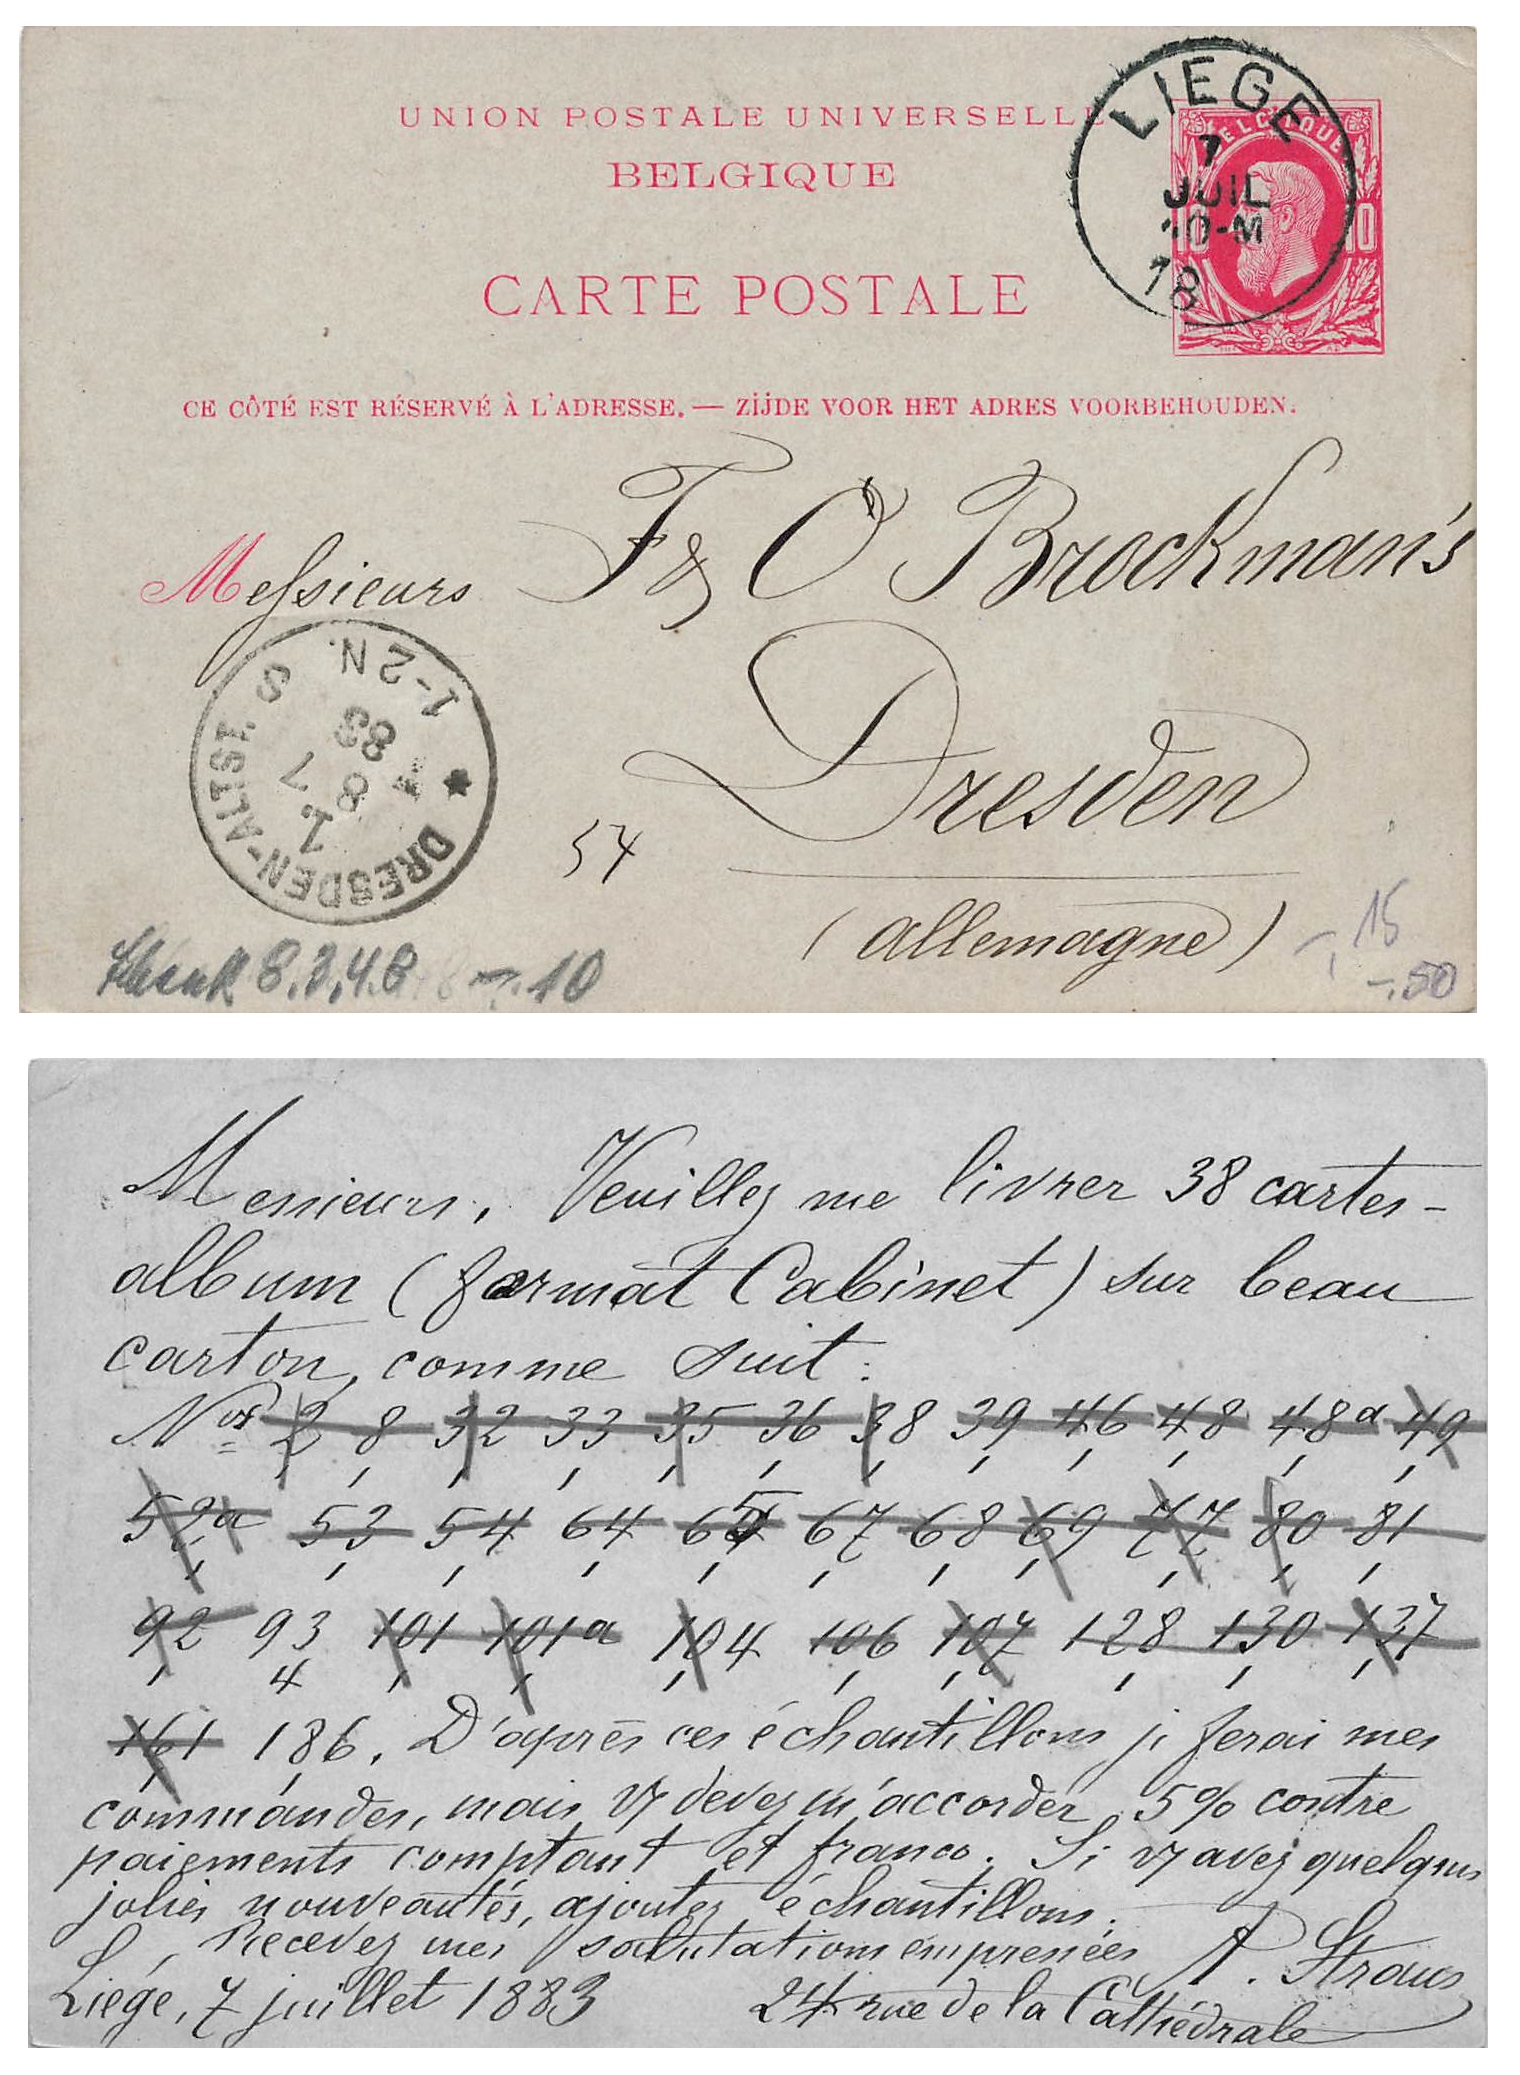 UNION POSTALE UNIVERSELLE
BELGIQUE
CARTE POSTALE
LIEGE
7
JUIL
10-M
18
BELGIQUE
10 10
CE CÔTÉ EST RÉSERVÉ À L'ADRESSE. — ZIJDE VOOR HET ADRES VOORBEHOUDEN.
Messieurs F & O Brockman's
Dresden
(allemagne)
54
DRESDEN-ALTST. 1.
8 7
83
1-2N.
S
8.3.48 -.10
15
-.50
Messieurs, Veuillez me livrer 38 cartes-
album (format Cabinet) sur beau
carton, comme suit:
Nos 2 8 32 33 35 36 38 39 46 48 48a 49
52a 53 54 64 65 67 68 69 77 80 81
92 93 101 101a 104 106 107 128 130 137
4
161 186. D'après ces échantillons je ferai mes
commandes, mais vs devez m'accorder 5% contre
paiements comptant et franco. Si vs avez quelques
jolies nouveautés, ajoutez échantillons.
Recevez mes salutations empressées A. Straus
Liége, 7 juillet 1883 24 rue de la Cathédrale